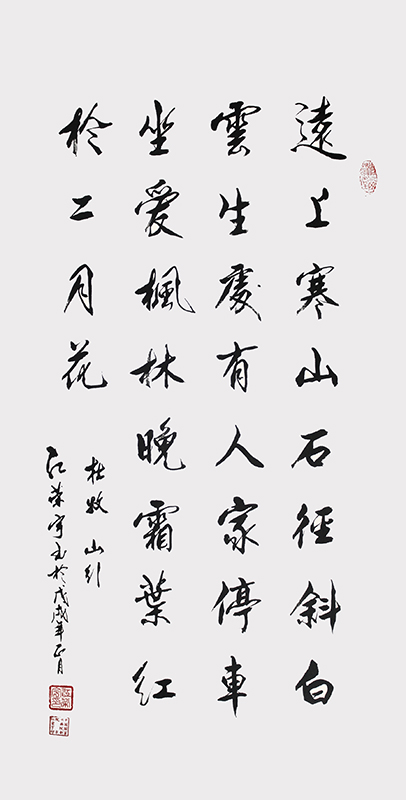 遠上寒山石徑斜白
雲生處有人家停車
坐愛楓林晚霜葉紅
於二月花
杜牧 山行
江榮宇書於戊戌年正月